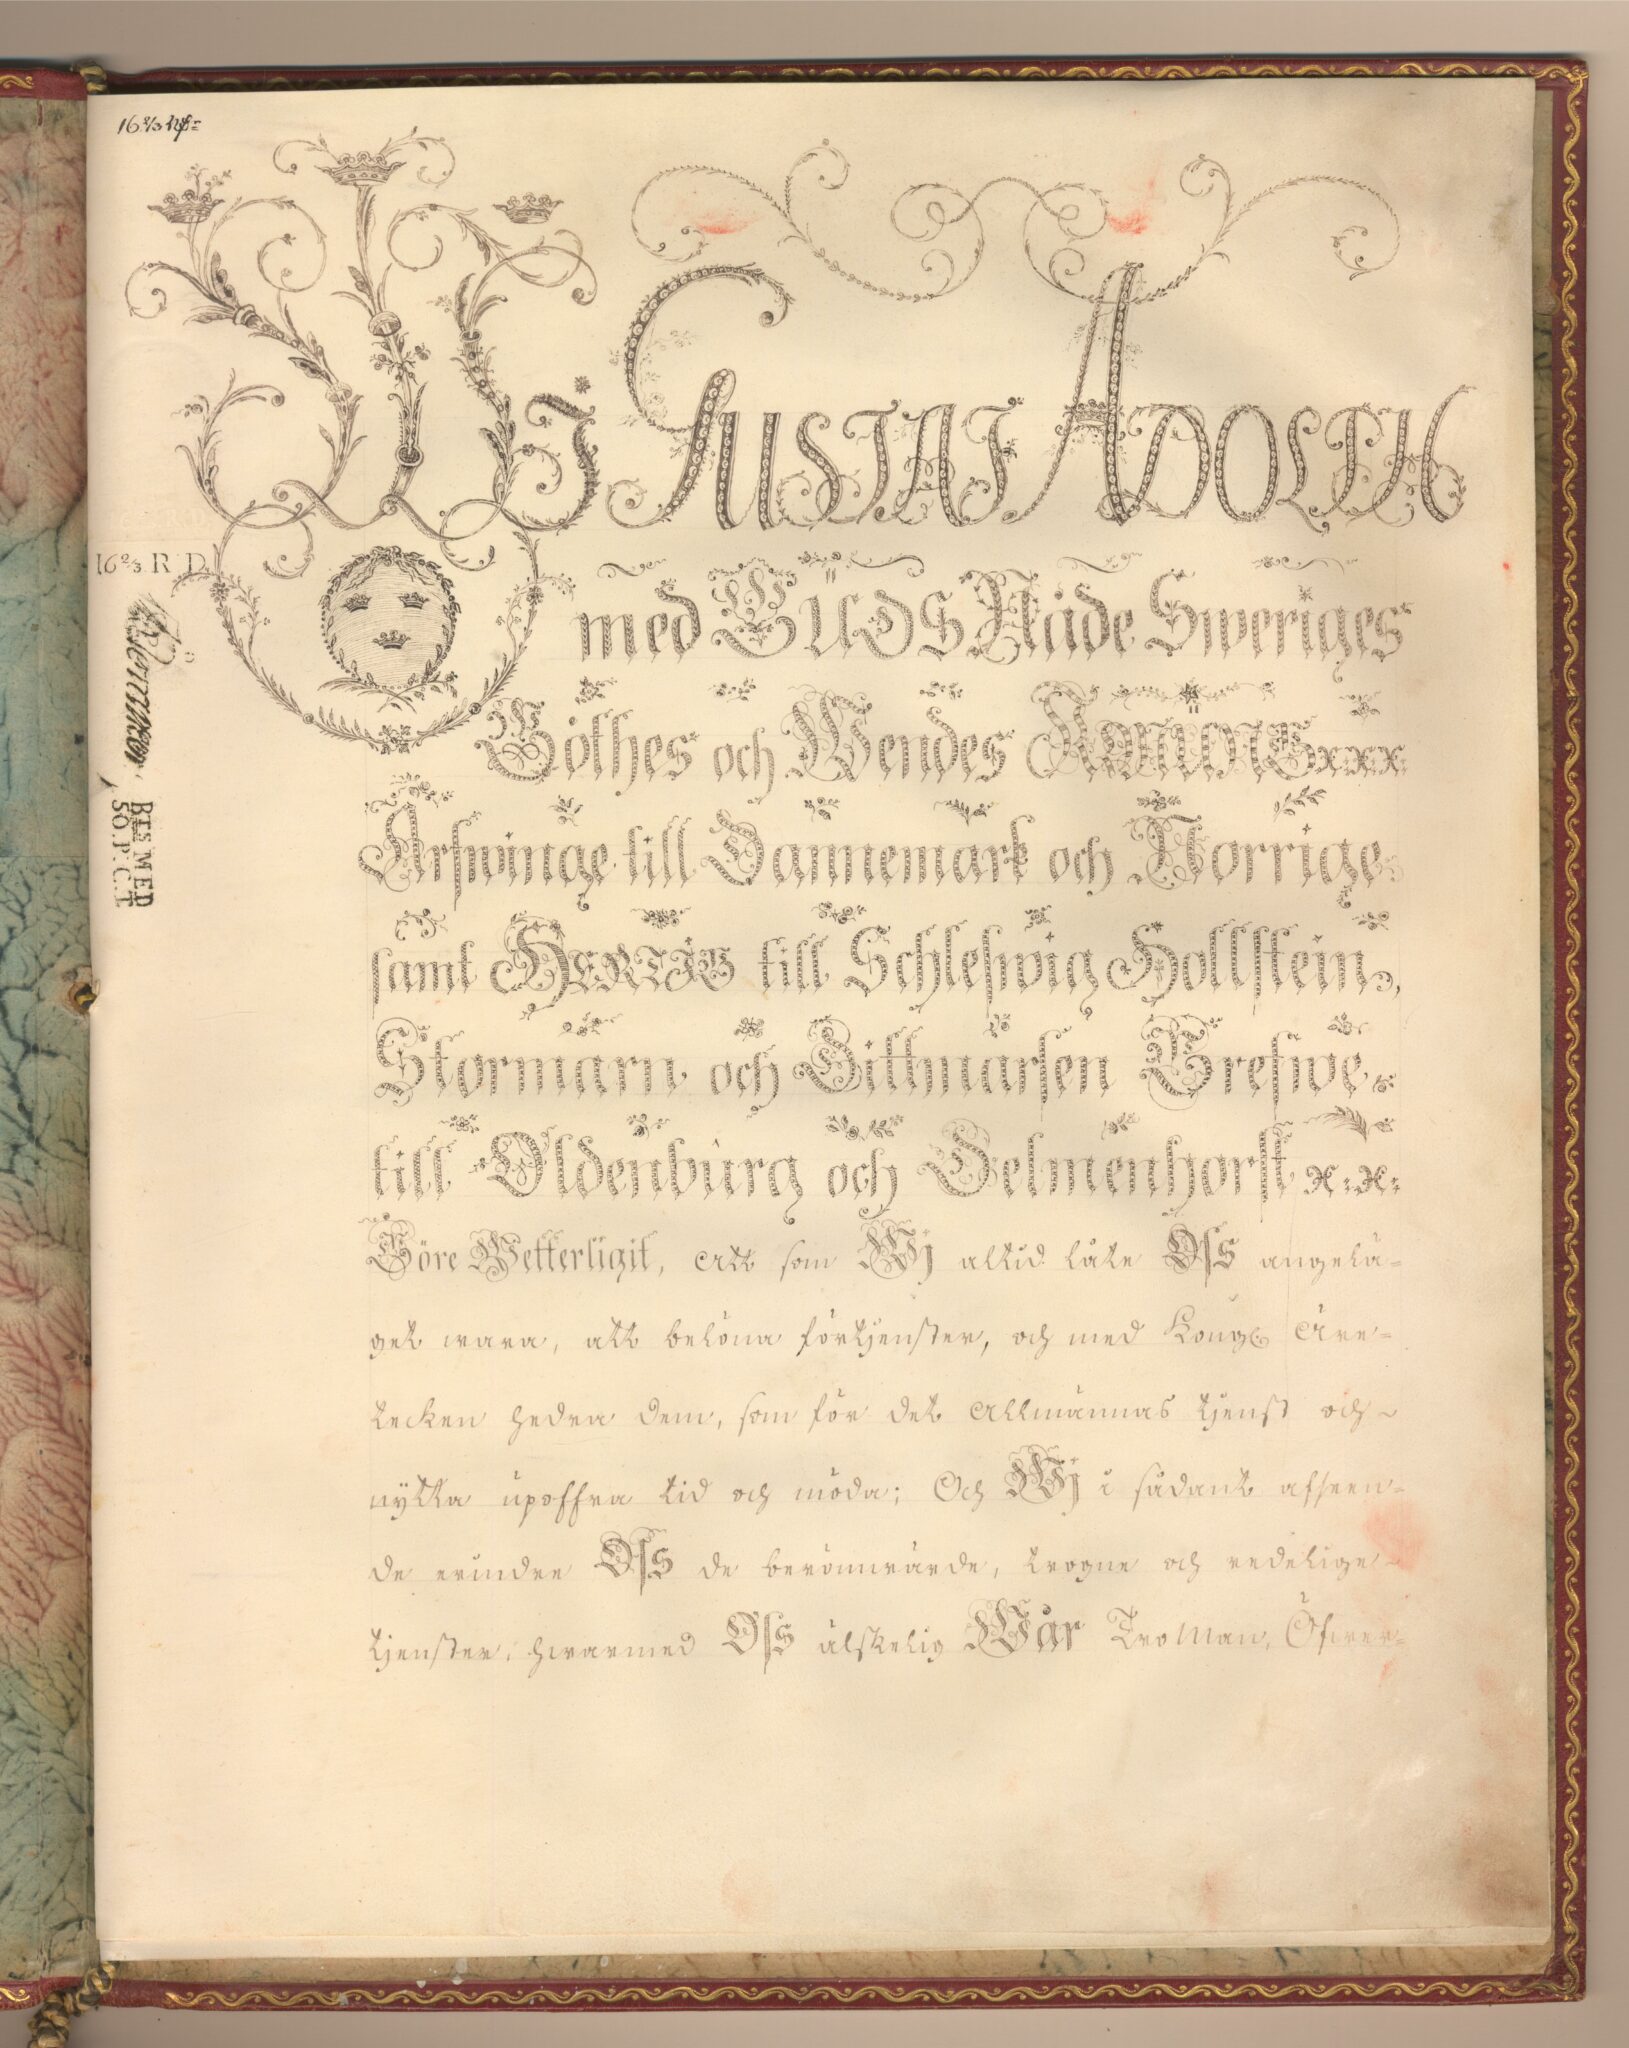 16 2/3 Rdr
WJ GUSTAF ADOLPH
16 2/3 R D.
med GUDS Nåde Sweriges
Göthes och Wendes KONUNG xxx
BES MED
50. P. C. T
Arfwinge till Dannemark och Norrige
samt HERTIG till Schleswig Hollstein,
Stormarn och Dittmarsen Grefwe
till Oldenburg och Delmenhorst x.x.
Göre Wetterligit, Att som Wj altid låte Oss angelä-
get wara, att belöna förtjenster, och med Kongl Äre-
tecken hedra dem, som för det Allmännas tjenst och
nytta upoffra tid och möda; Och Wj i sådant afseen-
de erindre Oss de berömwärde, trogne och redelige
tjenster, hwarmed Oss älskelig Wår Troman, Öfwer-